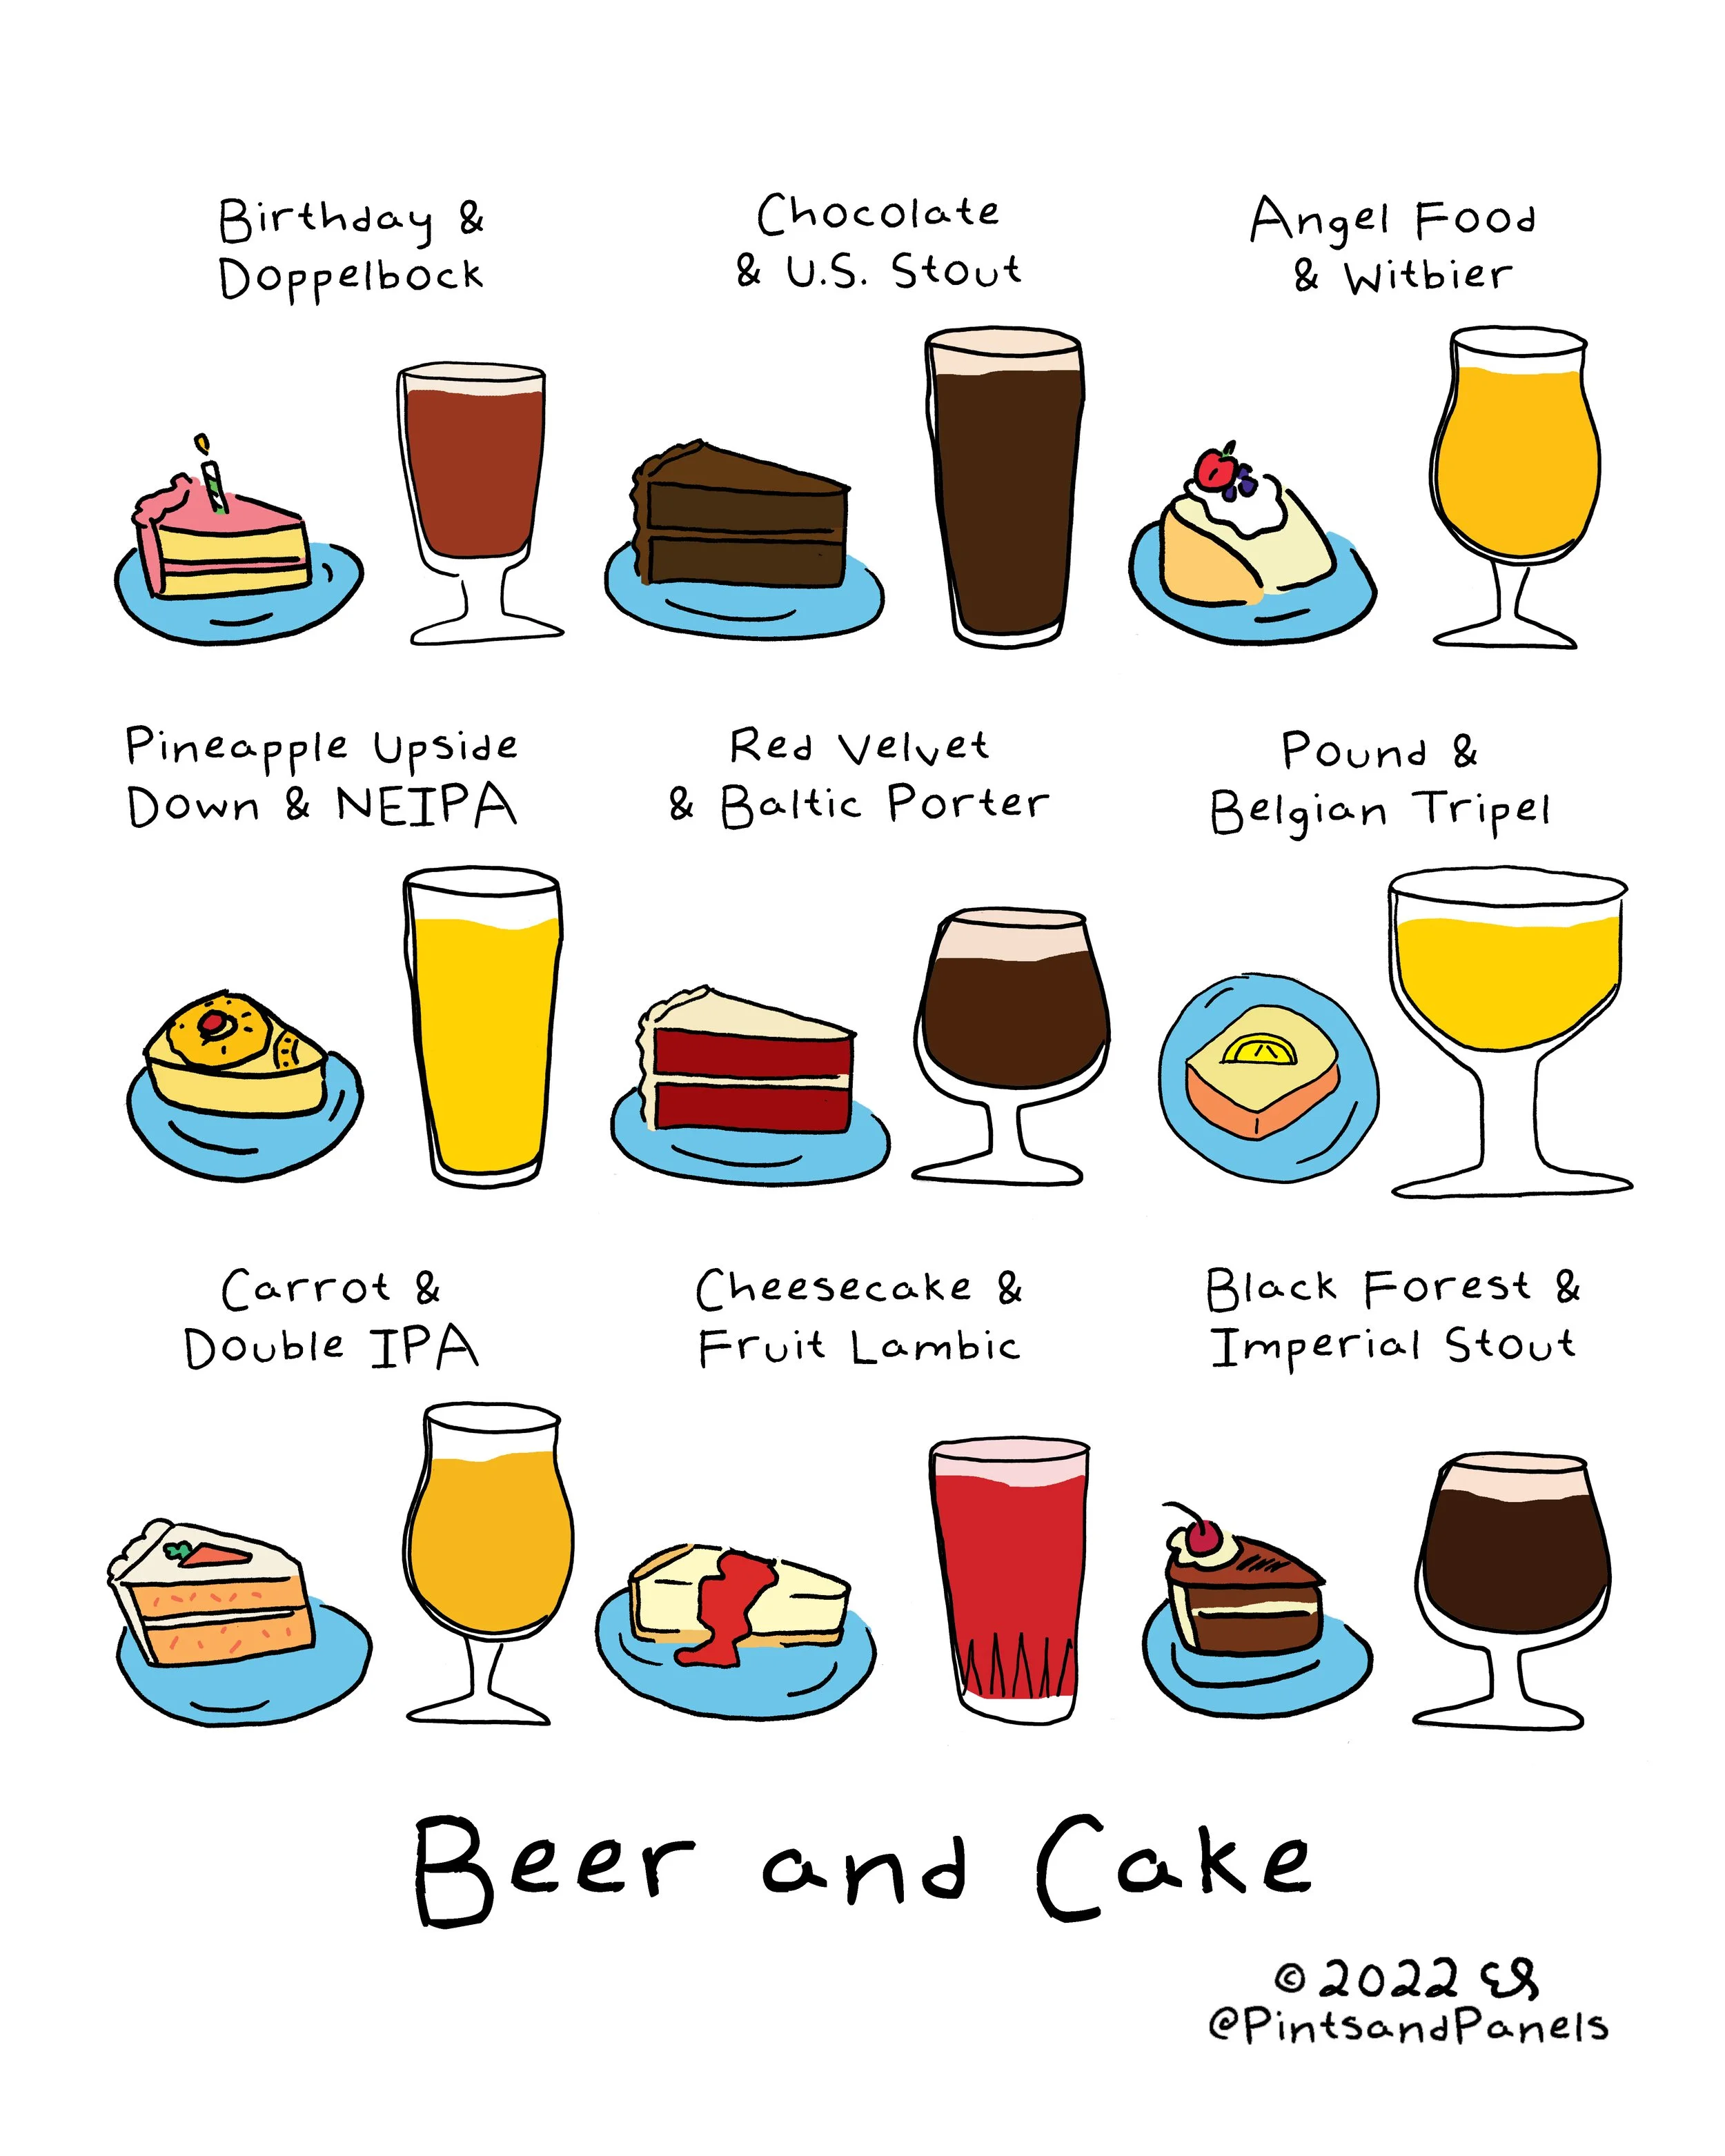 Birthday &
Doppelbock
Chocolate
& U.S. Stout
Angel Food
& Witbier
Pineapple Upside
Down & NEIPA
Red Velvet
& Baltic Porter
Pound &
Belgian Tripel
Carrot &
Double IPA
Cheesecake &
Fruit Lambic
Black Forest &
Imperial Stout
Beer and Cake
© 2022
@PintsandPanels